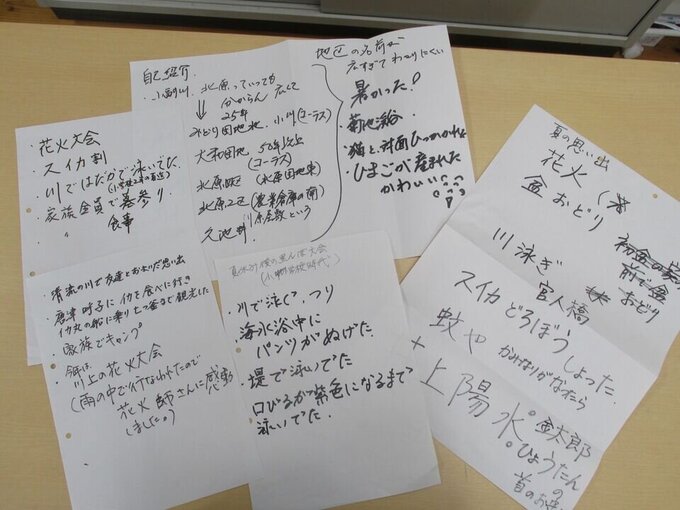 花火大会
スイカ割
川ではだかで泳いでた
家族全員で墓参り
〃 食事
自己紹介
小副川 北原っていっても
分からん 広くて
25年
みどり団地北 小川(コーラス)
大和団地 50年以上
(コーラス)
北原
(北原団地東)
北原2区(農業倉庫の南)
久池井
原屋敷という
地区の名前が
広すぎてわかりにくい
暑かった!
菊池渓谷
猫と対面ひっかかれた
ひまごが産まれた
かわいい
清流の川で友達とおよいだ思い出
唐津 呼子にイカを食べに行き
イカ丸の船に乗り七ツ釜で観光した
家族でキャンプ
今年は
川上の花火大会
(雨の中で行なわれたので
花火師さんに感動
しました。)
(小中学校時代)
川で泳ぐ、つり
海水浴中に
パンツがぬげた
堤で泳いでた
口びるが紫色になるまで
泳いでた.
夏の思い出
花火
盆おどり
前で盆
おどり
川泳ぎ
官人橋
スイカどろぼう しょった
かみなりがなったら
蚊や
+
上陽
水。金太郎
。ひょうたん
の
首のお